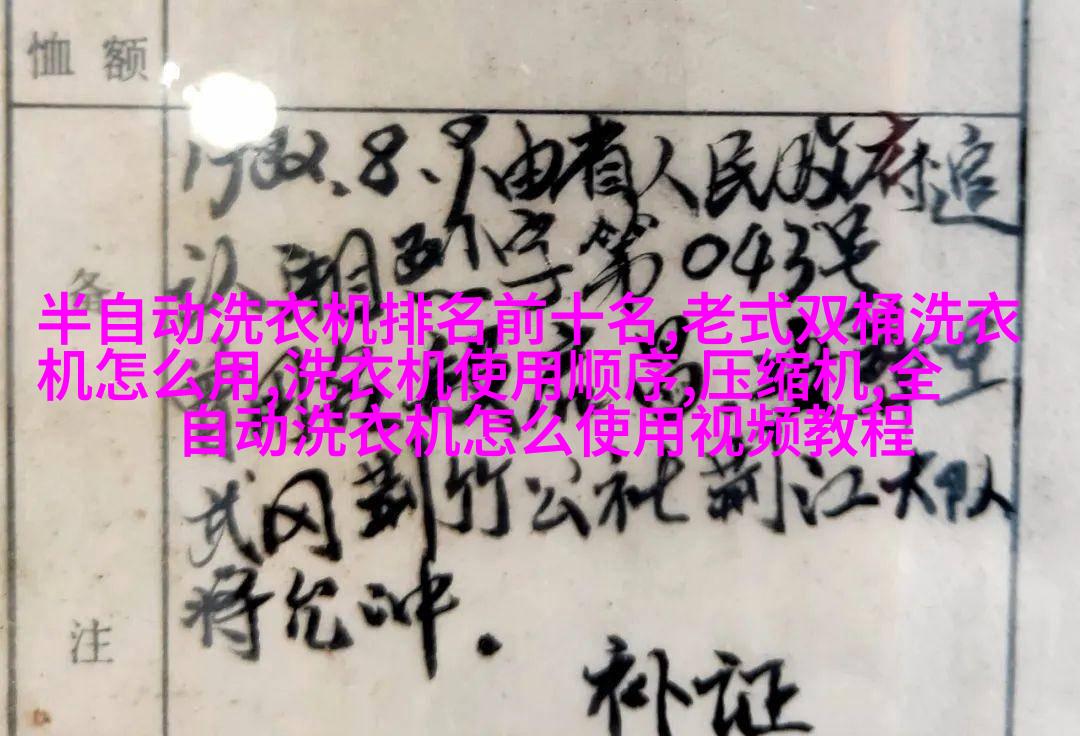 恤额
1982.8.9由省人民政府追
认湘烈字第043号
备
半自动洗衣机排名前十名,老式双桶洗衣
机怎么用,洗衣机使用顺序,压缩机,全
自动洗衣机怎么使用视频教程
武冈荆竹公社荆江大队
蒋允冲.
注
补证